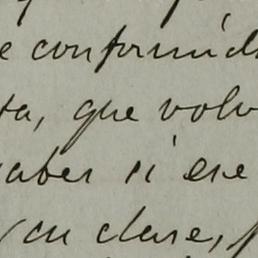 e conformid
ta, que volv
saber si ese
su clase,